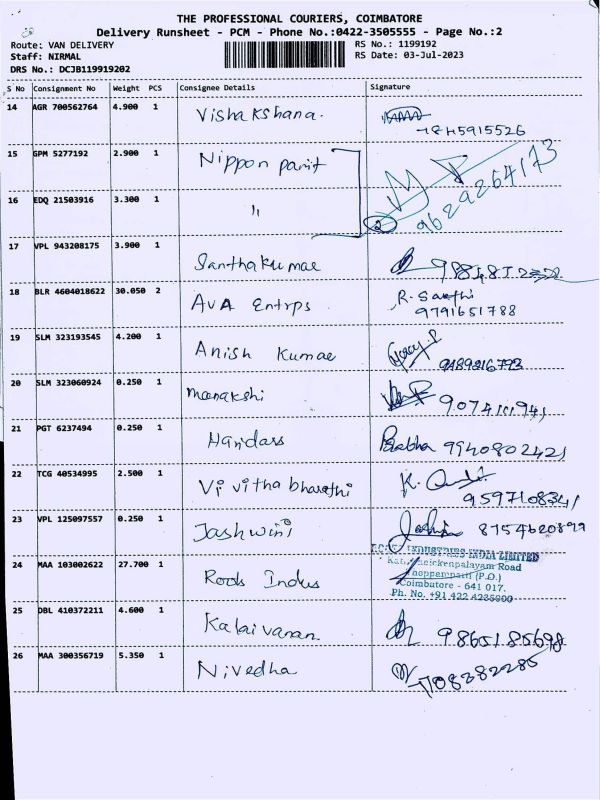 THE PROFESSIONAL COURIERS, COIMBATORE
Delivery Runsheet - PCM - Phone No.:0422-3505555 - Page No.:2
Route: VAN DELIVERY
RS No.: 1199192
Staff: NIRMAL
RS Date: 03-Jul-2023
DRS No.: DCJB119919202
S No Consignment No Weight PCS Consignee Details Signature
14 AGR 700562764 4.900 1 Vishakshana.
15 GPM 5277192 2.900 1 Nippon paint
16 EDQ 21503916 3.300 1 " 2 9629264173
17 VPL 943208175 3.900 1 Santhakumar
18 BLR 4604018622 30.050 2 AVA Entrps R. Sakthi
9791651788
19 SLM 323193545 4.200 1 Anish Kumar
20 SLM 323060924 0.250 1 meenakshi
21 PGT 6237494 0.250 1 Haridass Prabha 9940802421
22 TCG 40534995 2.500 1 Vivithabharathi K.
9597108341
23 VPL 125097557 0.250 1 Jashwini 8754620899
24 MAA 103002622 27.700 1 Roots Indus
INDUSTRIES INDIA LIMITED
Road
Thoppampatti (P.O.)
Coimbatore - 641 017.
Ph. No. +91 422 4235000
25 DBL 410372211 4.600 1 Kalaivanan. 9865185698
26 MAA 300356719 5.350 1 Nivedha 7708382285